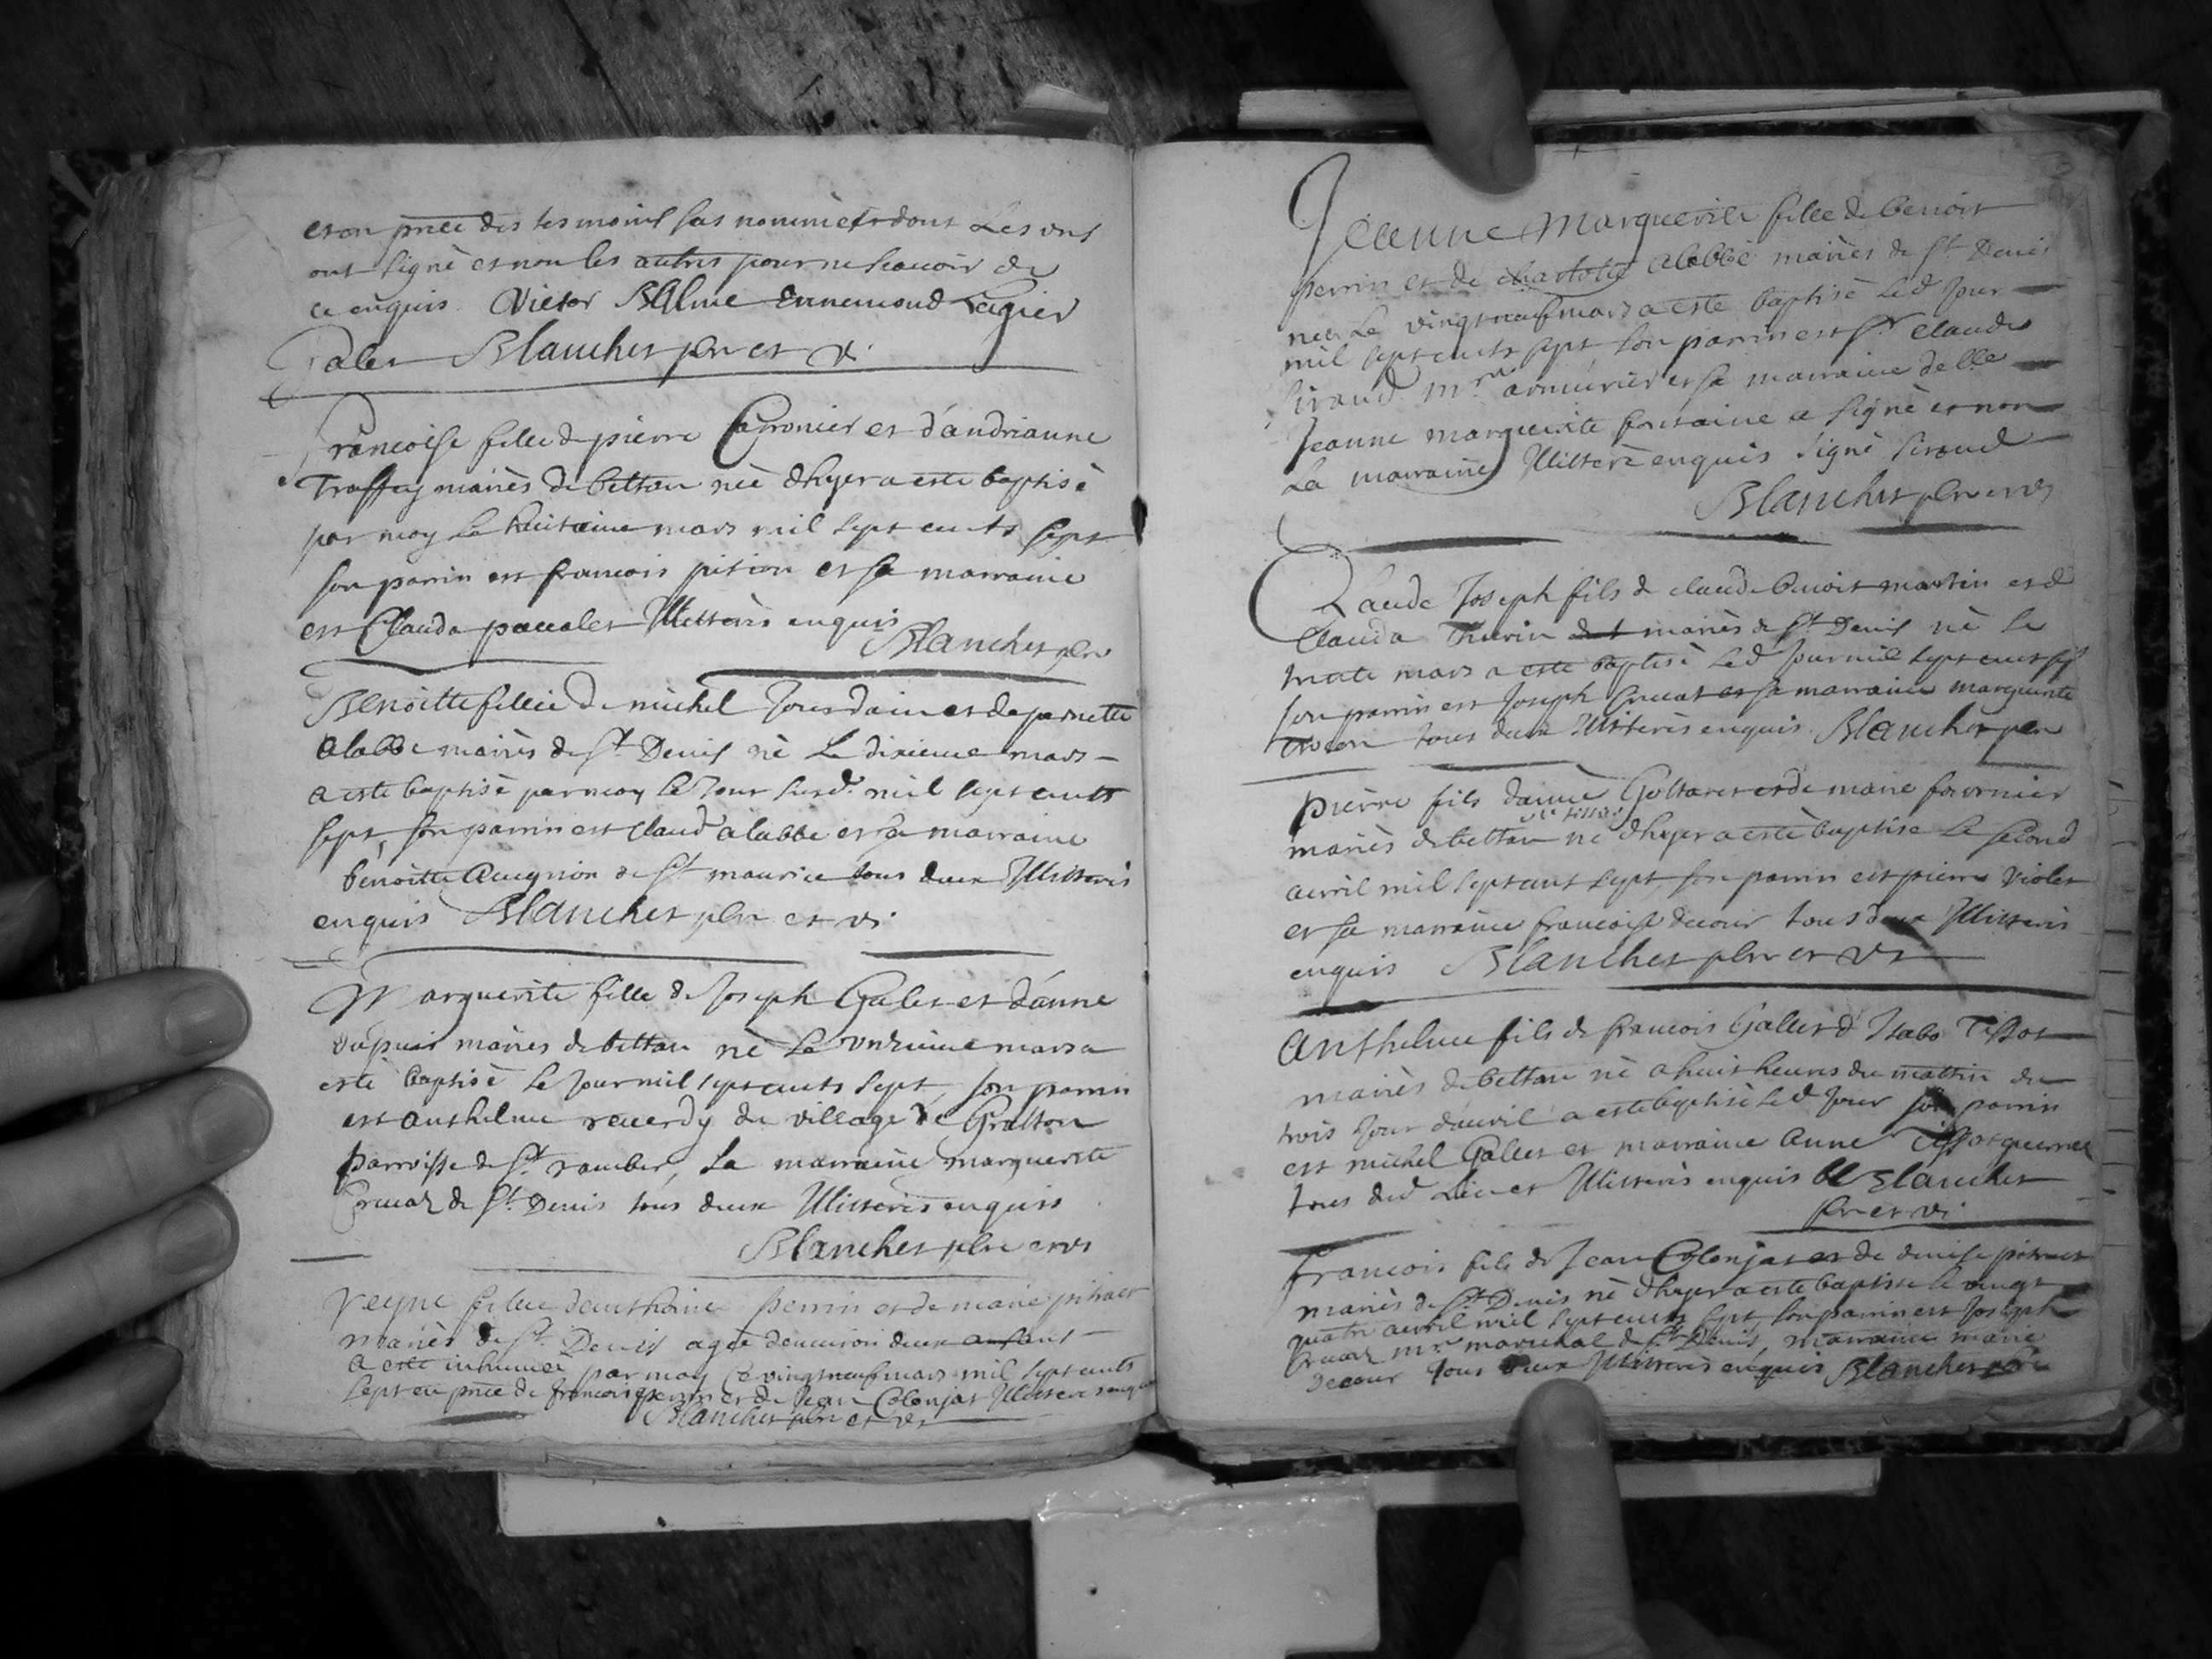 et en pnce des tesmoins sus nommés et dont Les uns
ont signé et non les autres pour ne scavoir de
ce enquis Victor Balme Ennemond Legier
Galet Blanchet pbr et v.
francoise fille de pierre et d'andrianne
Traffey mariés de bettan née dhyer a esté baptisé
par moy Le huitaine mars mil sept cents sept
son parrin est francois pition et sa marraine
est Clauda pacalet Illitterés enquis
Blanchet pbr
Benoitte fillie de michel Jourdain et de pernette
alabbe mariés de St Denis né Le dixieme mars
a esté baptisé par moy le Jour susd. mil sept cents
sept, son parrin est claud alabbe et sa marraine
benoitte de St maurice tous deux Illitterés
enquis Blanchet pbr et vi.
Marguerite fille de Joseph Galet et d'anne
dupuis mariés de bettan né Le unzieme mars a
esté baptisé le Jour mil sept cents sept, son parrin
est anthelme reverdy du village de Gratton
parroisse de St rambert, La marraine marguerite
de St Denis tous deux Illitterés enquis
Blanchet pbre et vi
fillie d'anthoine perrin et de marie pitiot
mariés de St Denis agée d'environ deux
a esté inhumée par moy Le vingt neuf mars mil sept cents
sept en pnce de francois perrin et de Jean Colonjat Illitterés enquis
Blanchet pbr et vi
Jeanne Marguerite fille de benoit
perrin et de charlotte alabbé mariés de St Denis
née Le vingt neuf mars a esté baptisé Led Jour
mil sept cents sept, son parrin est Sr. claude
Siraud Mre. armurier et sa marraine delle
Jeanne marguerite fontaine a signé et non
La marraine Illitteré enquis signé Siraud
Blanchet pbr et vi
Claude Joseph fils de claude benoit martin et de
Clauda Thevin mariés de St Denis né Le
trente mars a esté baptisé Led Jour mil sept cent sept
son parrin est Joseph et sa marraine marguerite
tous deux Illitterés enquis Blanchet pbr
pierre fils d'aimé Goltaret et de marie fournier
mariés de bettan né dhyer a esté baptise Le second
avril mil sept cent sept, son parrin est pierre violet
et sa marraine francoise decour tous deux Illitterés
enquis Blanchet pbr et vi
Anthelme fils de francois Gallet d'Isabo Tissot
mariés de bettan né a huit heures du mattin du
trois Jour d'avril a esté baptisé Led Jour son parrin
est michel Gallet et marraine anne
tous dud Lieu et Illitterés enquis Blanchet
pbr et vi.
francois fils de Jean Colonjat et de denise pitiot
mariés de St Denis né dhyer a esté baptisé le vingt
quatre avril mil sept cents sept, son parrin est Joseph
Mre mareschal de St Denis, marraine marie
Decour tous deux Illitterés enquis Blanchet pbre